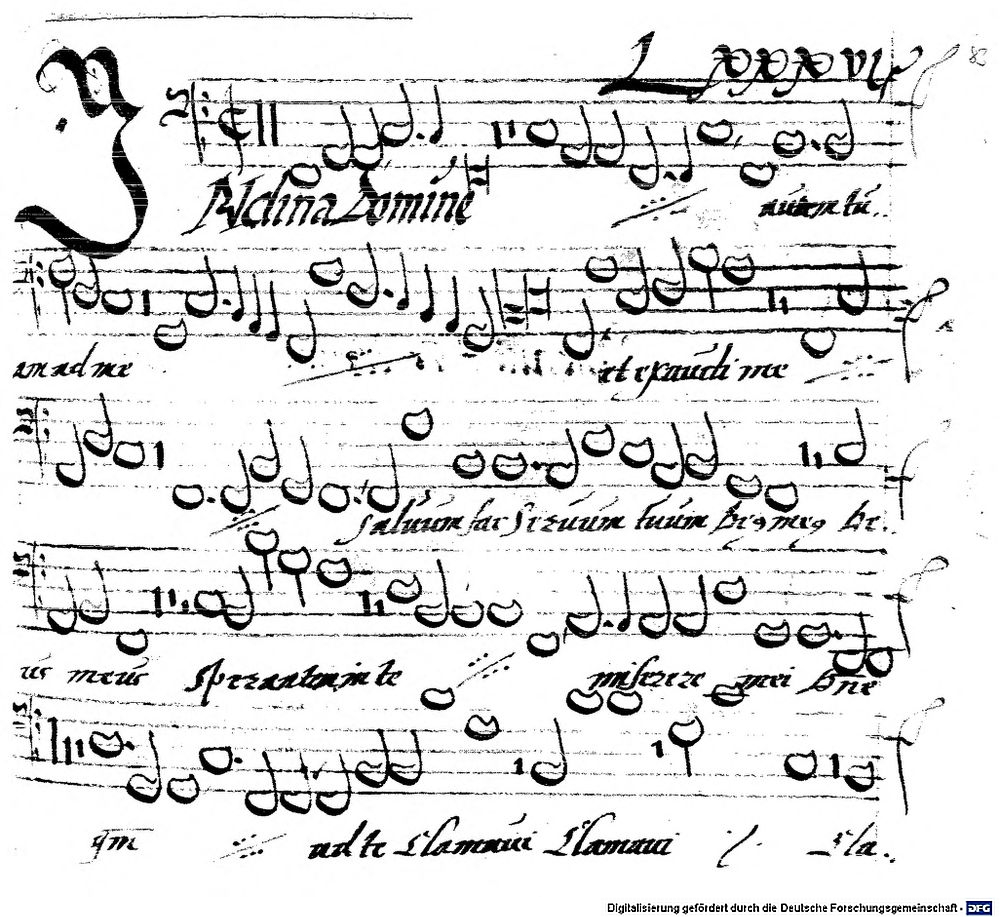 Lxxxvij
INclina Domine auremtū..
am ad me et exaudi me
saluum fac seruum tuum deꝰ meꝰ de..
us meus sperantem in te miserere mei dn̄e
qm̄ ad te Clamaui Clamaui Cla..
Digitalisierung gefördert durch die Deutsche Forschungsgemeinschaft - DFG